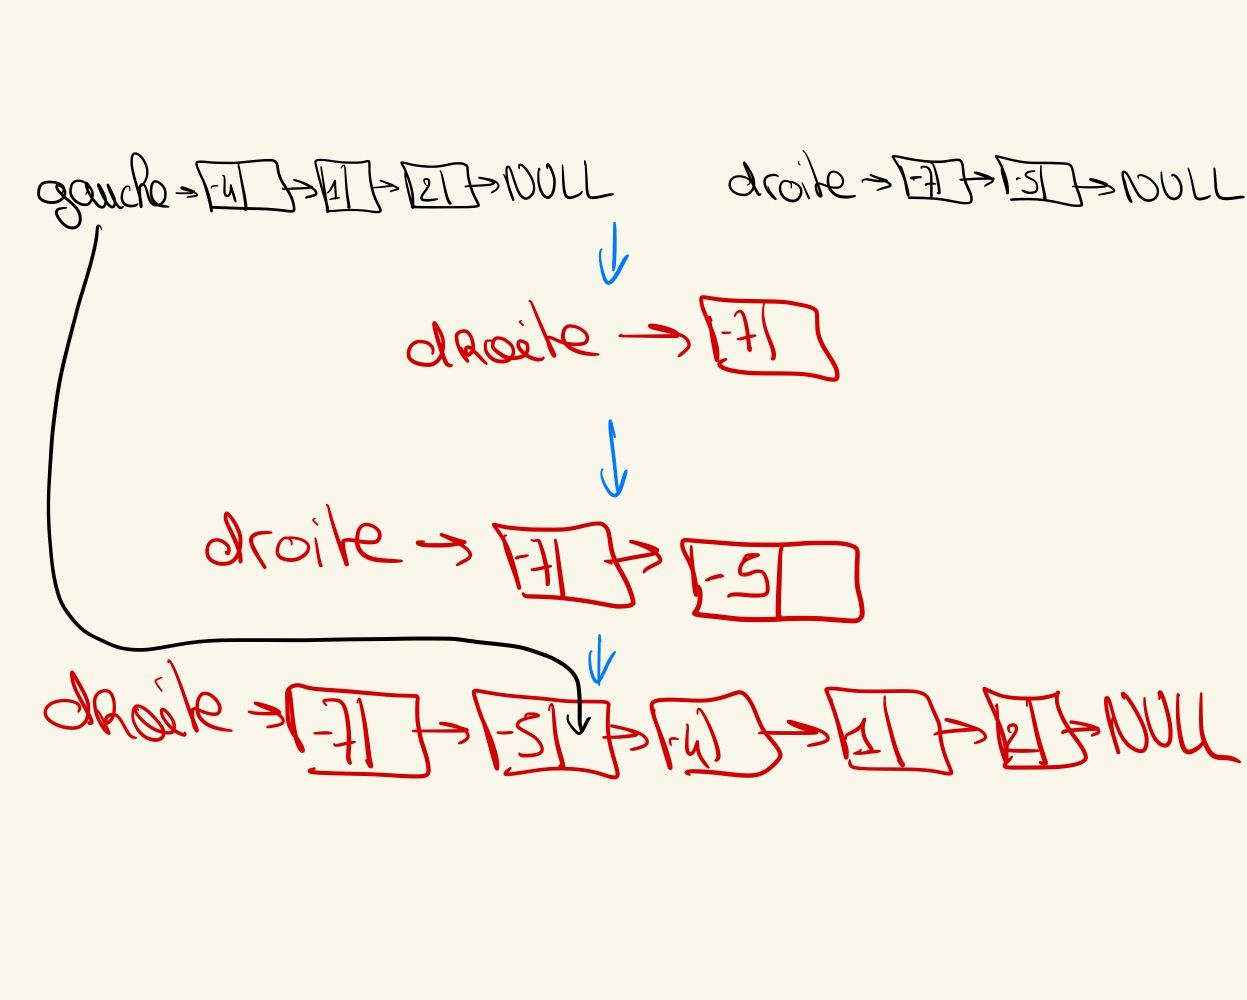 gauche → -4 → 1 → 2 → NULL
droite → -7 → -5 → NULL
droite → -7
droite → -7 → -5
droite → -7 → -5 → -4 → 1 → 2 → NULL